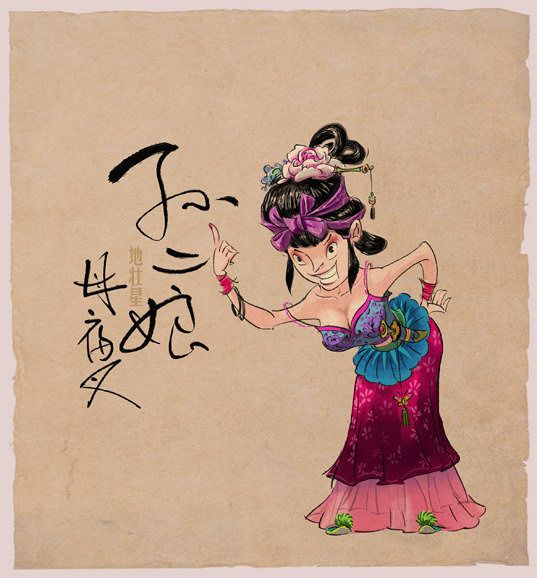 孙二娘
地壮星
母夜叉